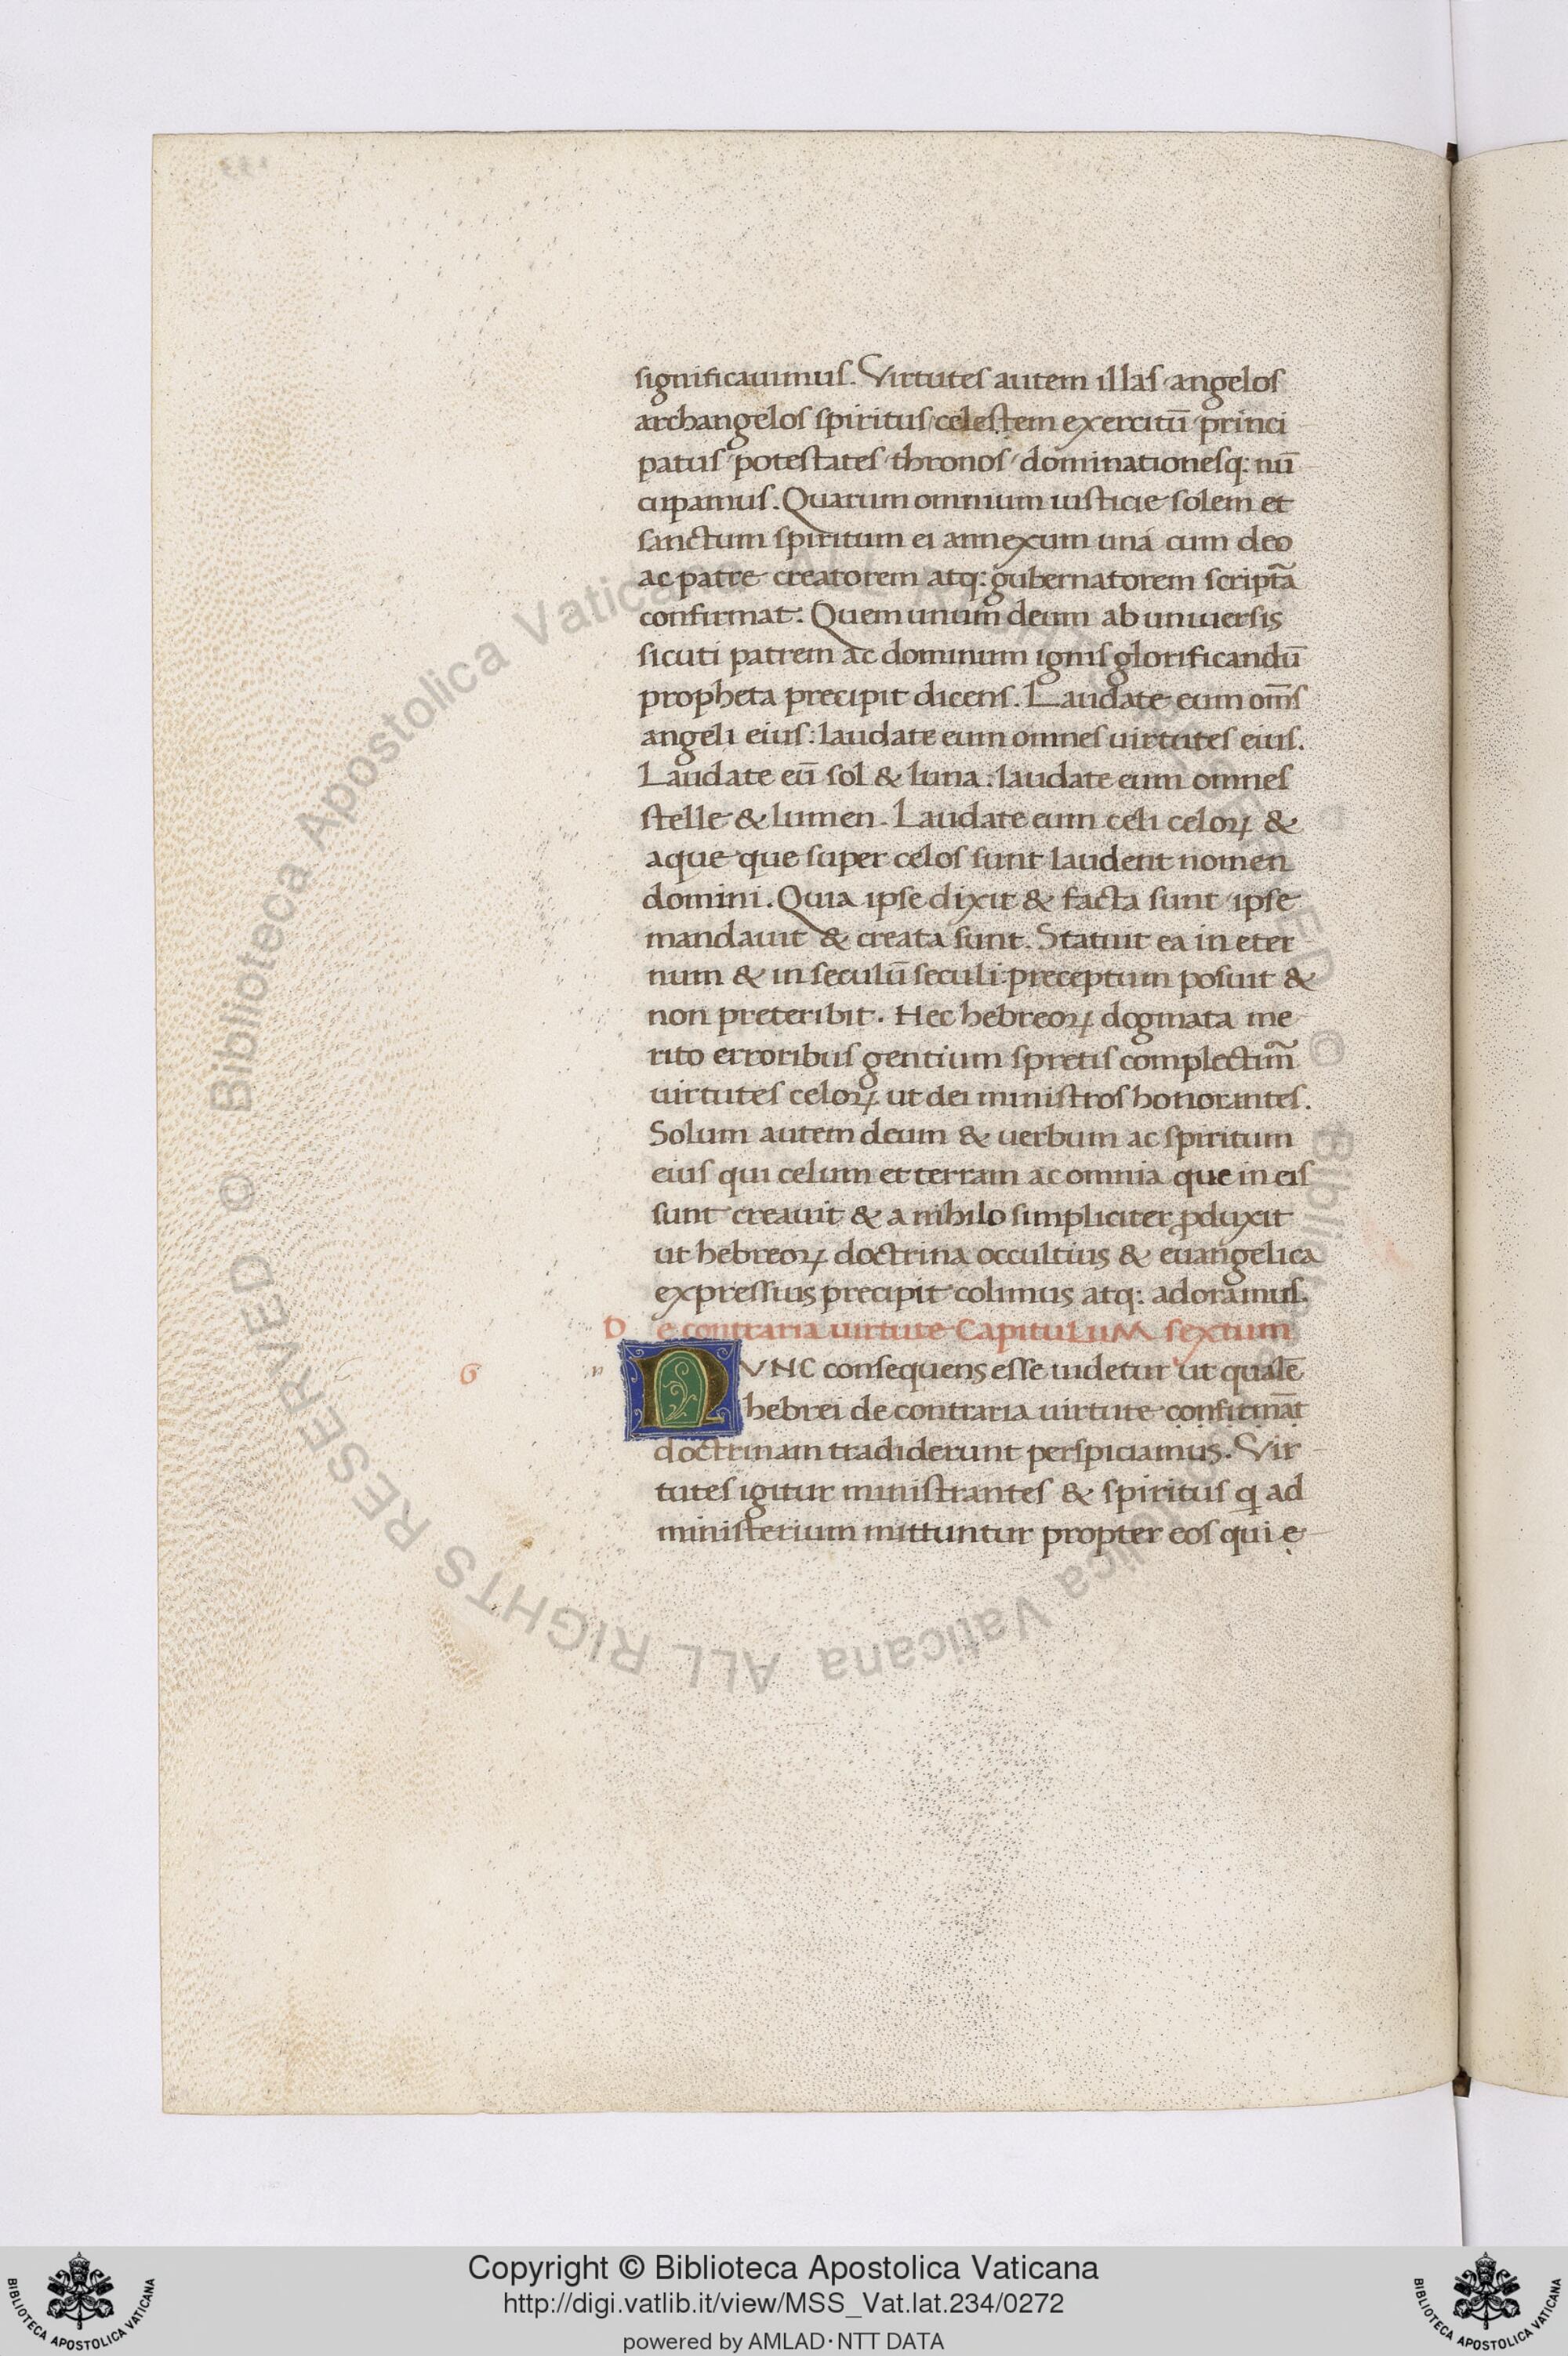 significauimus. Virtutes autem illas angelos
archangelos spiritus celestem exercitū princi
patus potestates thronos dominationesq: nū
cupamus. Quarum omnium iusticie solem et
sanctum spiritum ei annexum una cum deo
ac patre creatorem atq: gubernatorem scriptā
confirmat. Quem unum deum ab uniuersis
sicuti patrem ac dominum ignis glorificandū
propheta precipit dicens. Laudate eum om̄s
angeli eius: laudate eum omnes uirtutes eius.
Laudate eū sol & luna: laudate eum omnes
stelle & lumen. Laudate eum celi celoꝝ &
aque que super celos sunt laudent nomen
domini. Quia ipse dixit & facta sunt ipse
mandauit & creata sunt. Statuit ea in eter
num & in seculū seculi preceptum posuit &
non preteribit. Hec hebreoꝝ dogmata me
rito erroribus gentium spretis complectim̃
uirtutes celoꝝ ut dei ministros honorantes.
Solum autem deum & uerbum ac spiritum
eius qui celum et terram ac omnia que in eis
sunt creauit & a nihilo simpliciter ꝓduxit
ut hebreoꝝ doctrina occultius & euangelica
expressius precipit colimus atq: adoramus.
De contraria uirtute CapituluM sextum
6 n NVNC consequens esse uidetur ut qualē
hebrei de contraria uirtute confirmāt
doctrinam tradiderunt perspiciamus. Vir
tutes igitur ministrantes & spiritus ꝗ ad
ministerium mittuntur propter eos qui e
© Biblioteca Apostolica Vaticana ALL RIGHTS RESERVED © Biblioteca Apostolica Vaticana ALL RIGHTS RESERVED
Copyright © Biblioteca Apostolica Vaticana
http://digi.vatlib.it/view/MSS_Vat.lat.234/0272
powered by AMLAD·NTT DATA
BIBLIOTECA APOSTOLICA VATICANA
BIBLIOTECA APOSTOLICA VATICANA